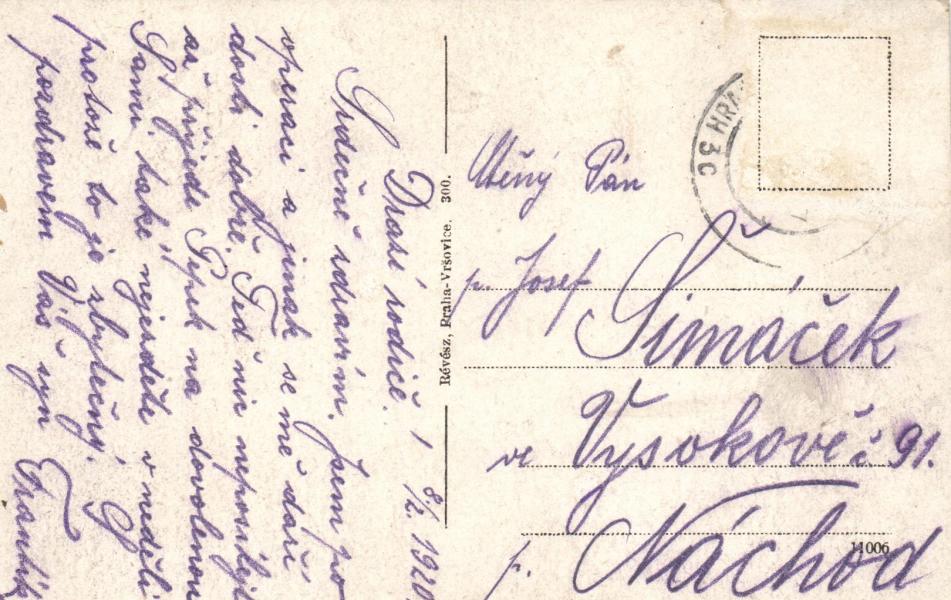 Drazí rodiče. 8/2. 1920
Srdečně zdravím. Jsem po
operaci a jinak se mě daří
dosti dobře. Teď nic neposílejte
až přijede Pepek na dovolenou
S Tami také nejezděte v neděli
protože to je zbytečný.
pozdravem Váš syn
Frantík
Révész, Praha-Vršovice. 300.
HRA
3c
Ctěný Pán
p. Josef Šimáček
ve Vysokově č 91.
p. Náchod
11006